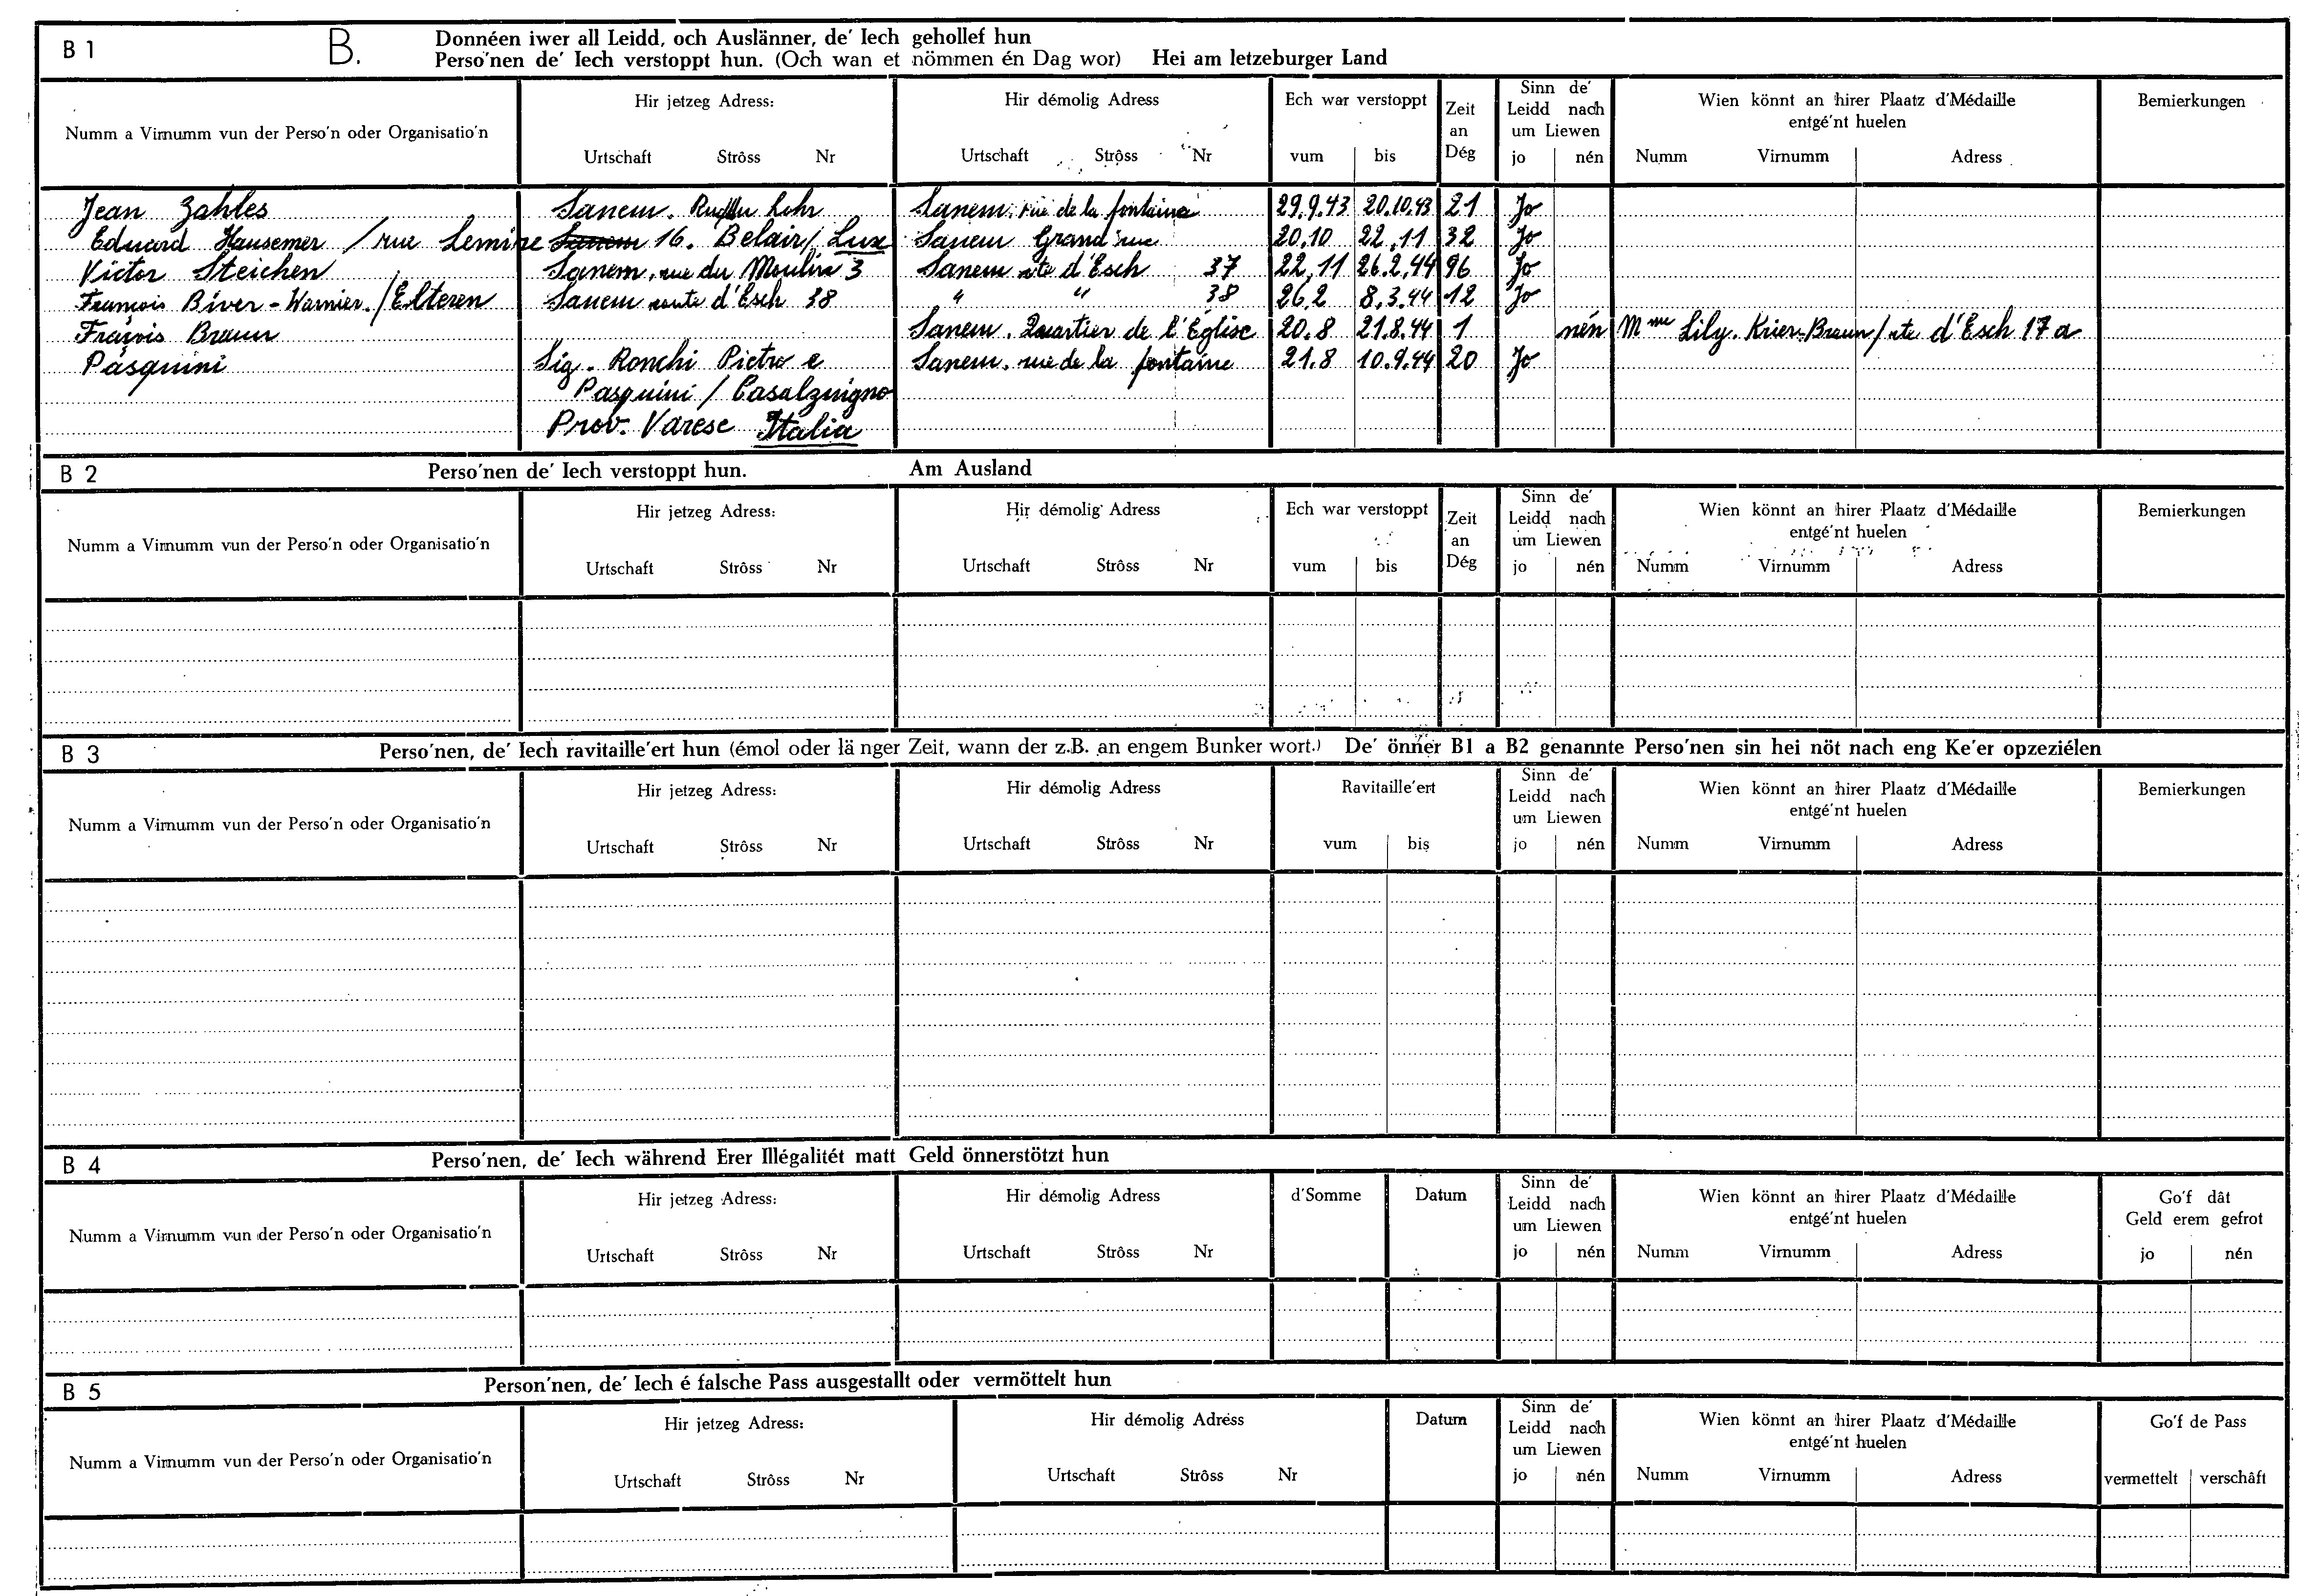 B 1 B. Donnéen iwer all Leidd, och Auslänner, de' Iech gehollef hun
Perso'nen de' Iech verstoppt hun. (Och wan et nömmen én Dag wor) Hei am letzeburger Land
Numm a Virnumm vun der Perso'n oder Organisatio'n
Hir jetzeg Adress:
Urtschaft Strôss Nr
Hir démolig Adress
Urtschaft Strôss Nr
Ech war verstoppt
vum bis
Zeit
an
Dég
Sinn de'
Leidd nach
um Liewen
jo nén
Wien könnt an hirer Plaatz d'Médaille
entgé'nt huelen
Numm Virnumm Adress
Bemierkungen
Jean Zahles Sanem. Lohr Sanem. rue de la fontaine 29.9.43 20.10.43 21 Jo
Eduard Hausemer / rue Lemire Sanem 16. Belair / Lux Sanem Grand'rue 20.10 22.11 32 Jo
Victor Steichen Sanem, rue du Moulin 3 Sanem rte d'Esch 37 22.11 26.2.44 96 Jo
François Biver-Warnier. / Elteren Sanem route d'Esch 38 " " 38 26.2 8.3.44 12 Jo
François Braun Sanem. Quartier de l'Église 20.8 21.8.44 1 nén Mme Lily. Krier-Braun / rte d'Esch 17a
Pasquini Sig. Ronchi Pietro e Sanem. rue de la fontaine 21.8 10.9.44 20 Jo
Pasquini / Casalzuigno
Prov. Varese Italia
B 2 Perso'nen de' Iech verstoppt hun. Am Ausland
Numm a Virnumm vun der Perso'n oder Organisatio'n
Hir jetzeg Adress:
Urtschaft Strôss Nr
Hir démolig Adress
Urtschaft Strôss Nr
Ech war verstoppt
vum bis
Zeit
an
Dég
Sinn de'
Leidd nach
um Liewen
jo nén
Wien könnt an hirer Plaatz d'Médaille
entgé'nt huelen
Numm Virnumm Adress
Bemierkungen
B 3 Perso'nen, de' Iech ravitaille'ert hun (émol oder länger Zeit, wann der z.B. an engem Bunker wort.) De' önner B1 a B2 genannte Perso'nen sin hei nöt nach eng Ke'er opzeziélen
Numm a Virnumm vun der Perso'n oder Organisatio'n
Hir jetzeg Adress:
Urtschaft Strôss Nr
Hir démolig Adress
Urtschaft Strôss Nr
Ravitaille'ert
vum bis
Sinn de'
Leidd nach
um Liewen
jo nén
Wien könnt an hirer Plaatz d'Médaille
entgé'nt huelen
Numm Virnumm Adress
Bemierkungen
B 4 Perso'nen, de' Iech während Erer Illégalitét matt Geld önnerstötzt hun
Numm a Virnumm vun der Perso'n oder Organisatio'n
Hir jetzeg Adress:
Urtschaft Strôss Nr
Hir démolig Adress
Urtschaft Strôss Nr
d'Somme
Datum
Sinn de'
Leidd nach
um Liewen
jo nén
Wien könnt an hirer Plaatz d'Médaille
entgé'nt huelen
Numm Virnumm Adress
Go'f dât
Geld erem gefrot
jo nén
B 5 Person'nen, de' Iech é falsche Pass ausgestallt oder vermöttelt hun
Numm a Virnumm vun der Perso'n oder Organisatio'n
Hir jetzeg Adress:
Urtschaft Strôss Nr
Hir démolig Adress
Urtschaft Strôss Nr
Datum
Sinn de'
Leidd nach
um Liewen
jo nén
Wien könnt an hirer Plaatz d'Médaille
entgé'nt huelen
Numm Virnumm Adress
Go'f de Pass
vermettelt verschâft